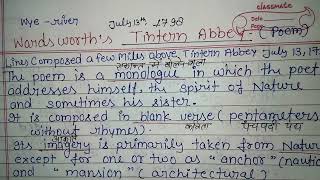 classmate
Date
Page
Wye - river July 13th 1798
Wardsworth's Tintern Abbey: (Poem)
Lines Composed a few Miles above Tintern Abbey July 13, 17
The poem is a monologue in which the poet
addresses himself, the spirit of Nature
and sometimes his sister.
It is composed in blank verse (pentameters
without rhymes).
Its imagery is primarily taken from Nature
except for one or two as "anchor" (nautic
and "mansion" (architectural)